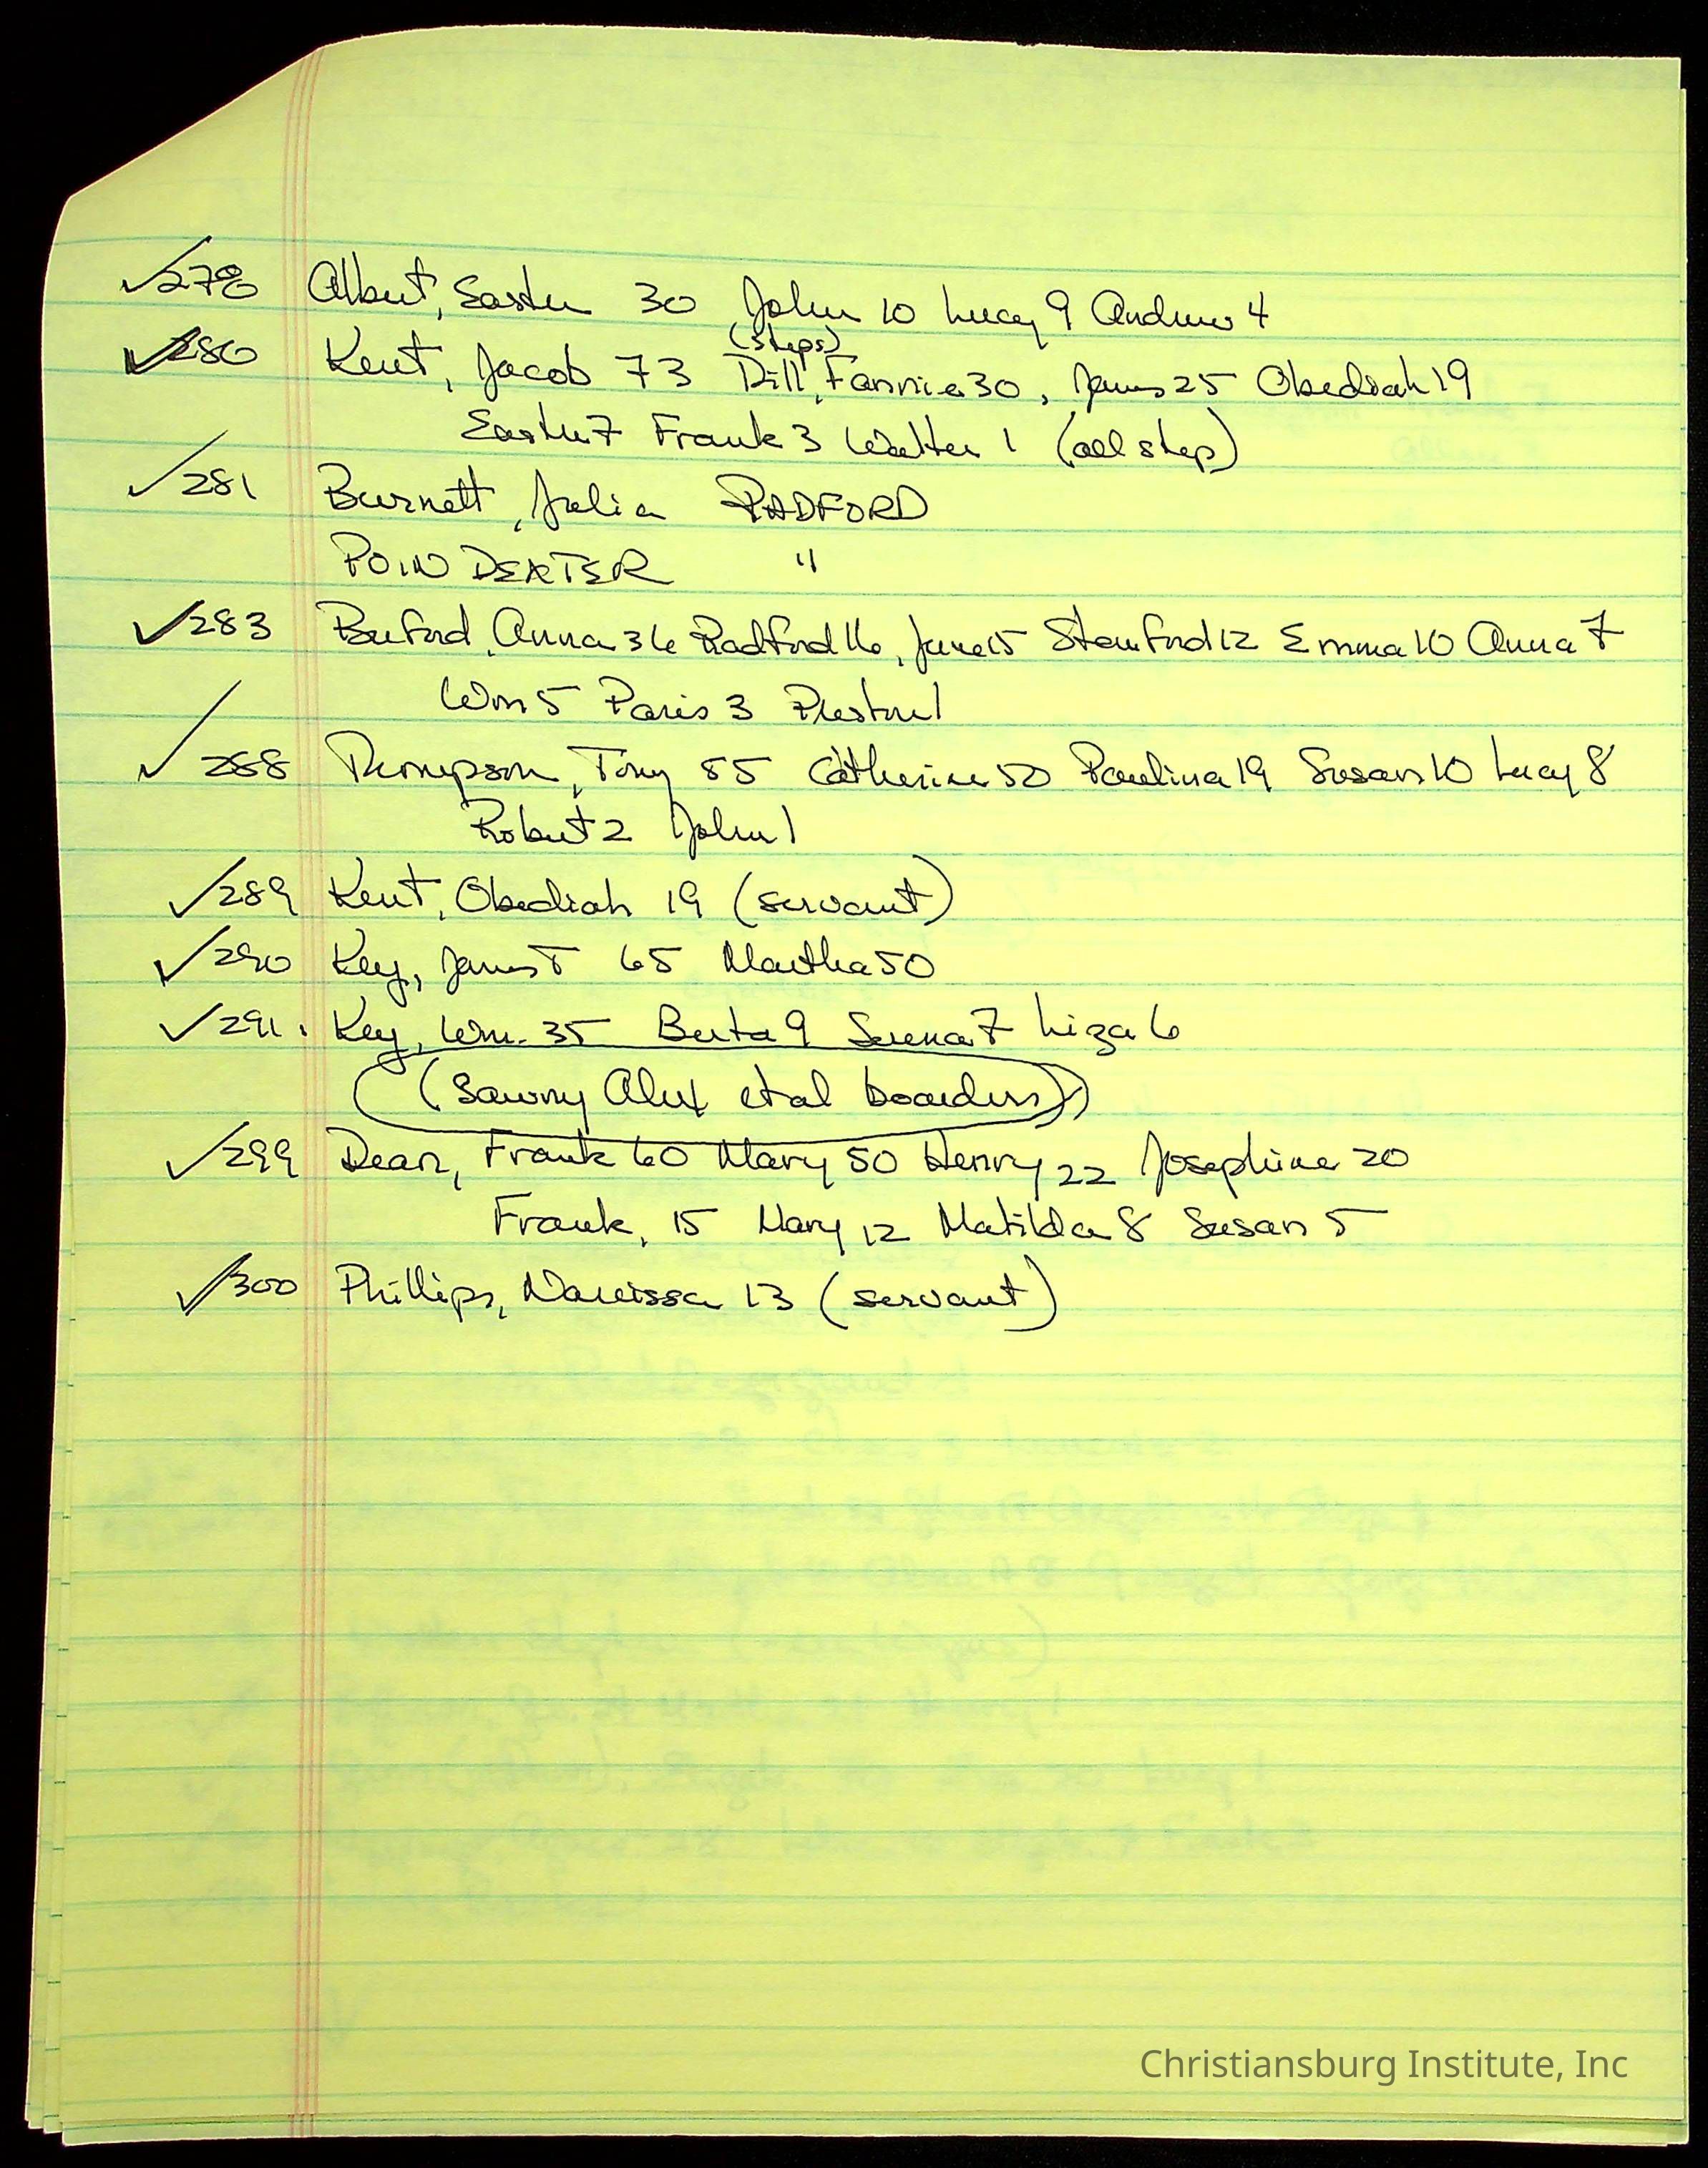 ✓278 Albert, Easter 30 John 10 Lucy 9 Andrew 4
(steps)
✓280 Kent, Jacob 73 Dill, Fannie 30, James 25 Obediah 19
Easter 7 Frank 3 Walter 1 (all step)
✓281 Burnett, Julia RADFORD
POINDEXTER "
✓283 Buford, Anna 36 Radford 16, June 15 Stanford 12 Emma 10 Anna 7
Wm 5 Paris 3 Preston 1
✓288 Thompson, Tony 55 Catherine 50 Paulina 19 Susan 10 Lucy 8
Robert 2 John 1
✓289 Kent, Obediah 19 (servant)
✓290 Key, James T 65 Martha 50
✓291. Key, Wm. 35 Berta 9 Serena 7 Liza 6
(Sawny Alex et al boarders)
✓299 Dean, Frank 60 Mary 50 Henry 22 Josephine 20
Frank, 15 Mary 12 Matilda 8 Susan 5
✓300 Phillips, Narcissa 13 (servant)
Christiansburg Institute, Inc